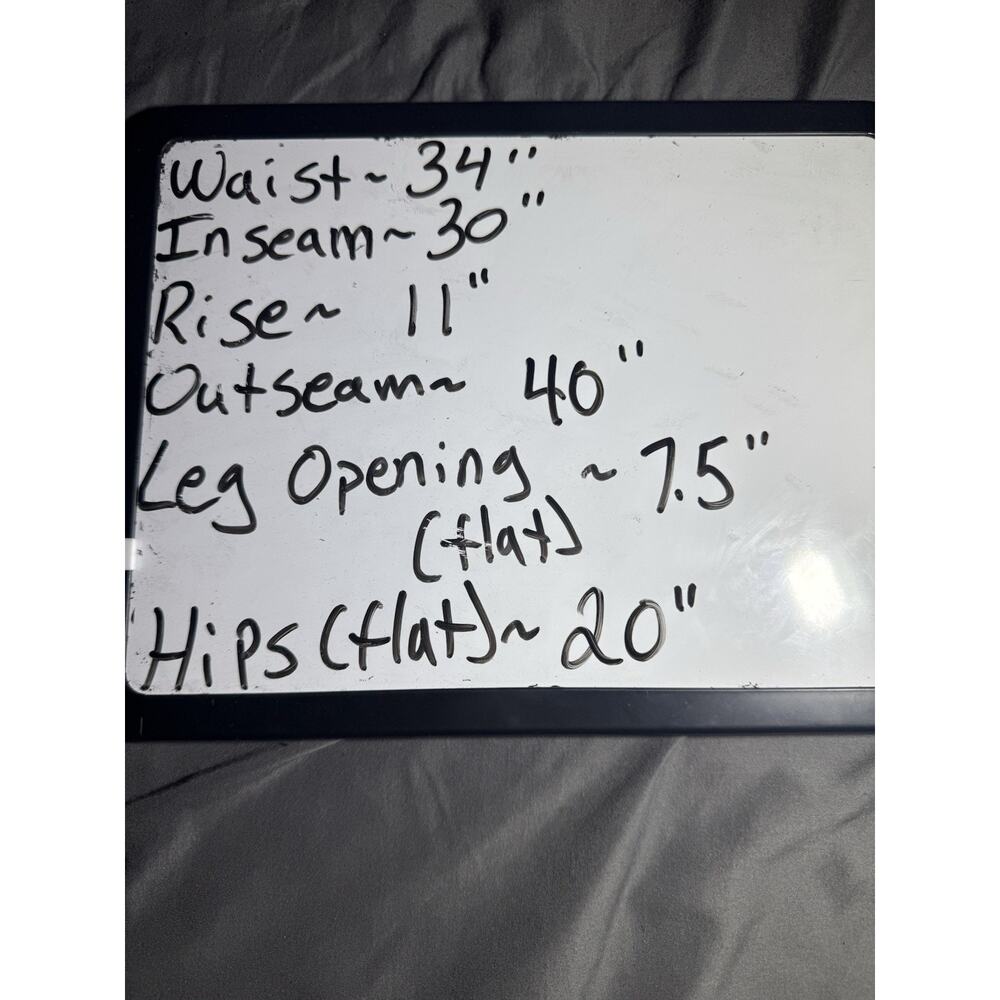 Waist~ 34"
Inseam~ 30"
Rise~ 11"
Outseam~ 40"
Leg Opening ~ 7.5"
(flat)
Hips (flat)~ 20"